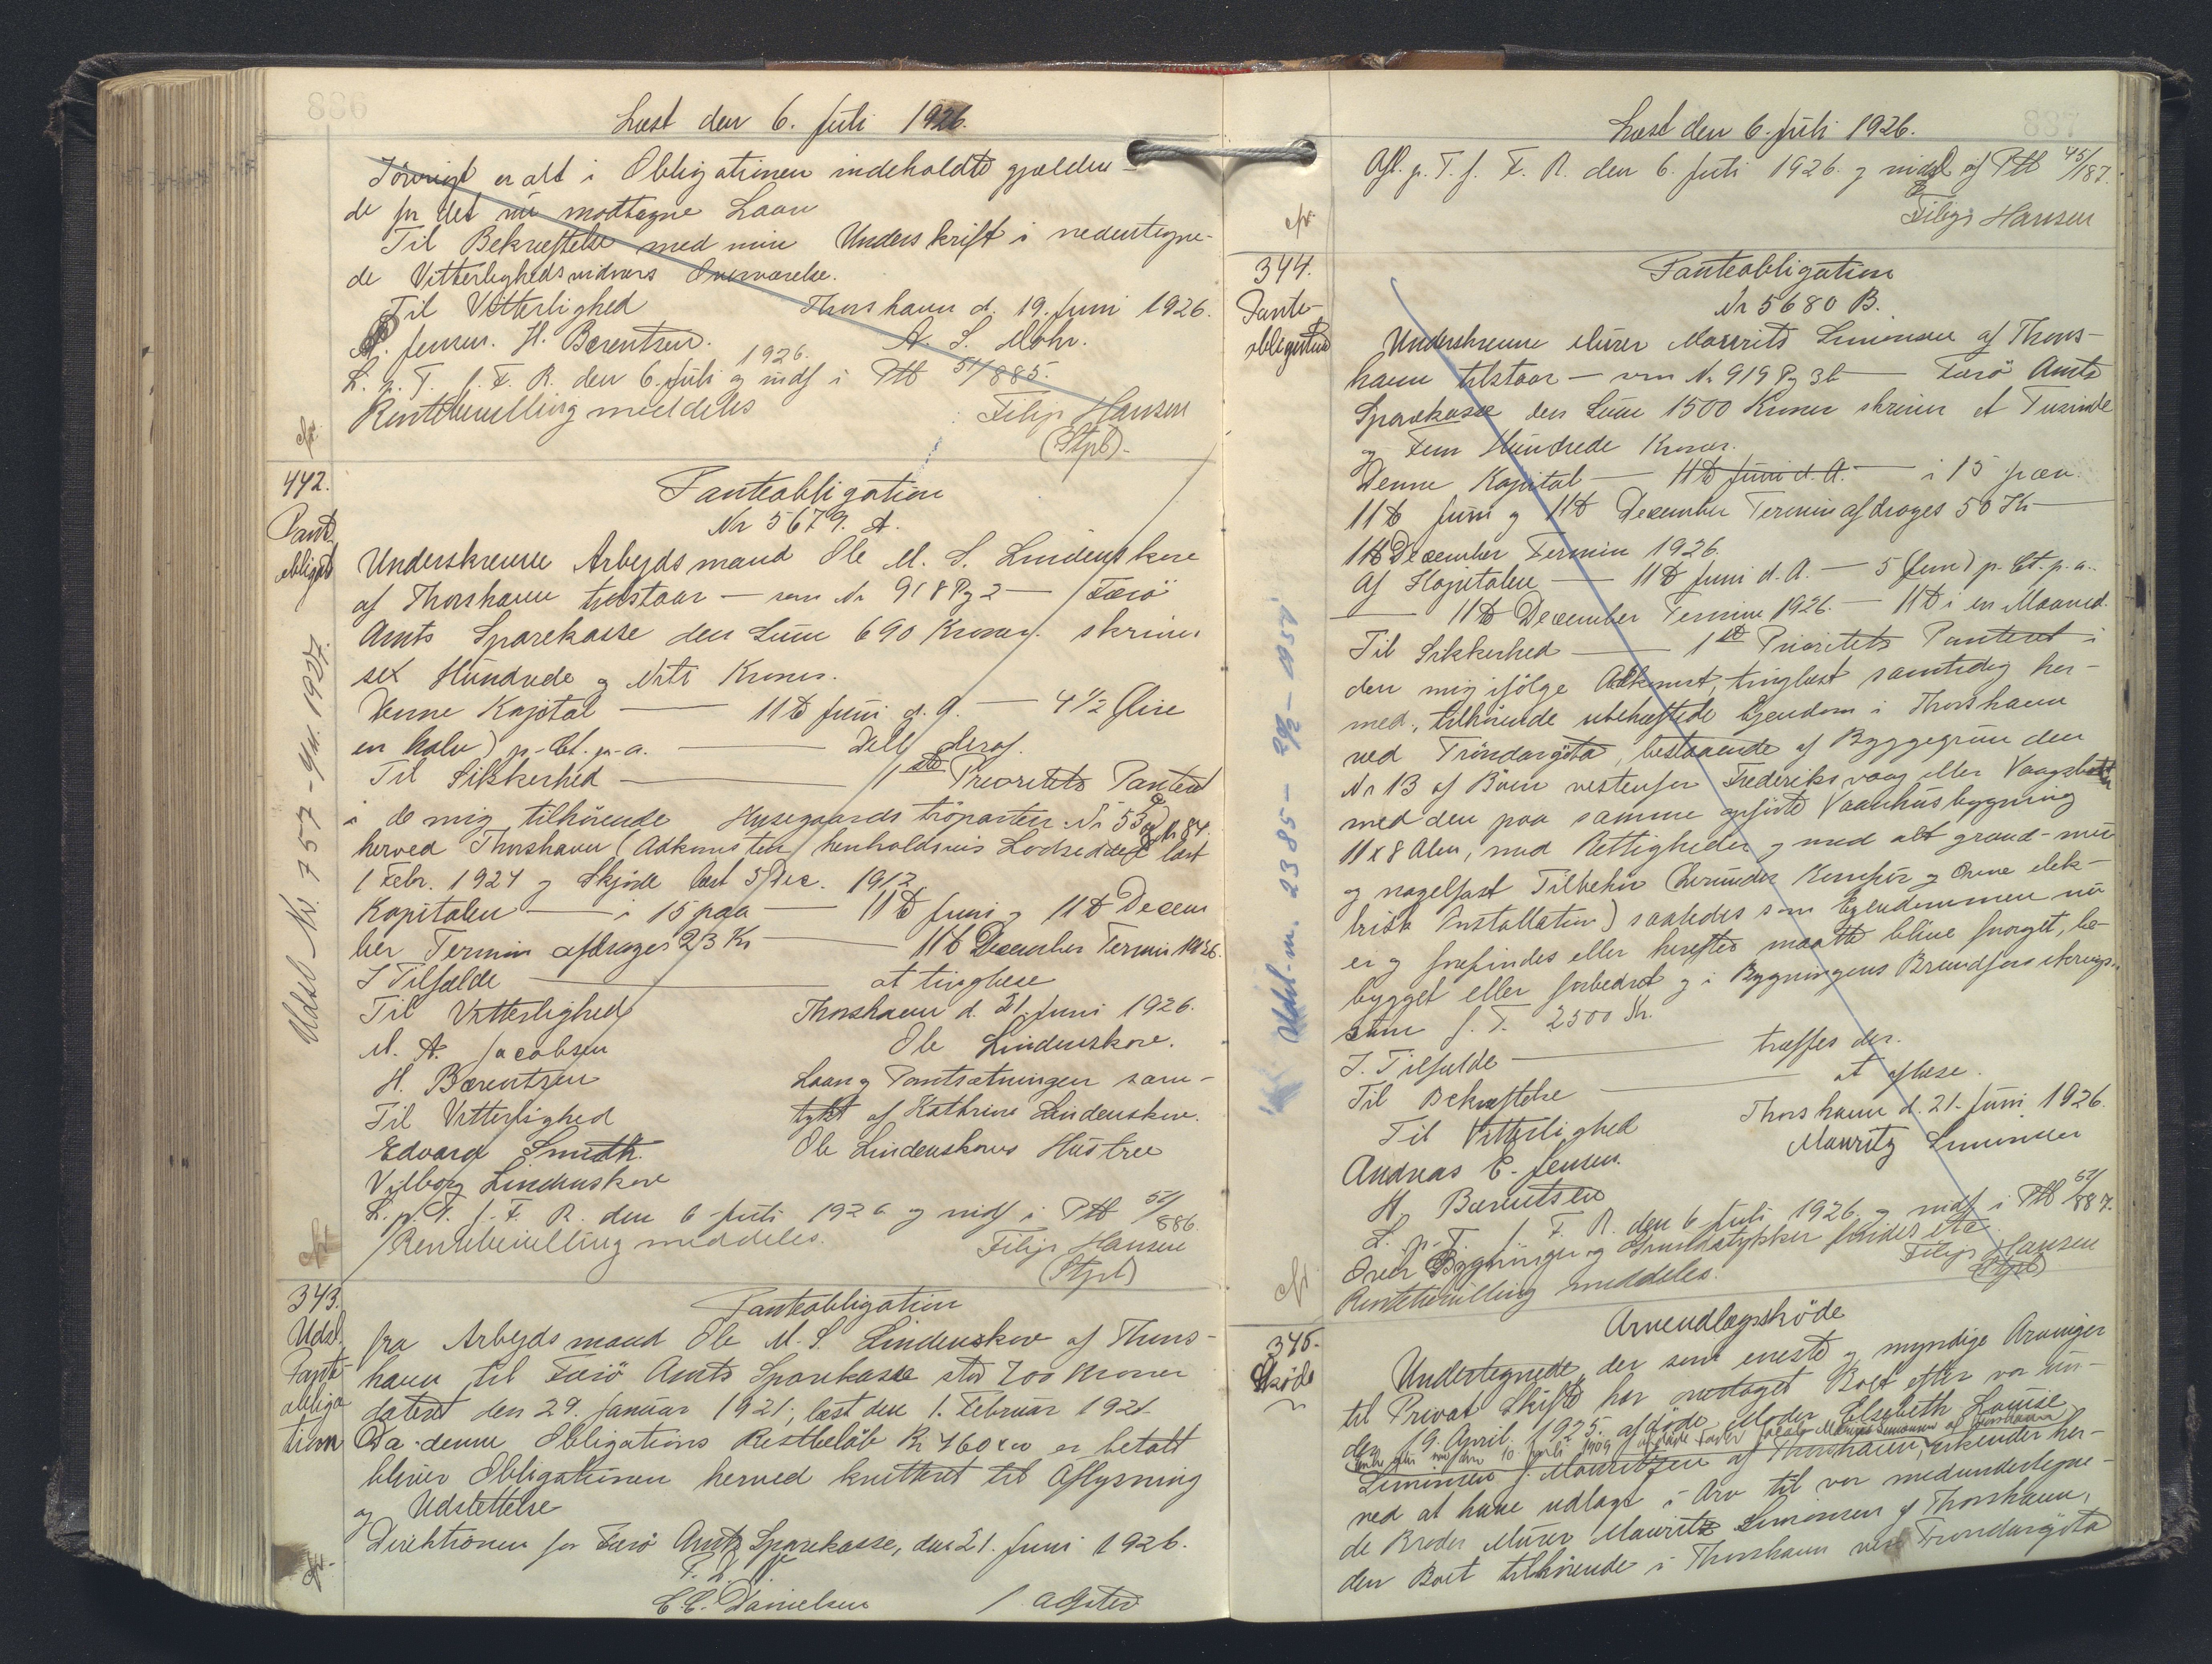 Læst den 6. Juli 1926.
Iøvrigt er alt i Obligationen indeholdte gjælden-
de for det nu modtagne Laan
Til Bekræftelse med min Underskrift i nedentegne-
de Vitterlighedsvidners Overværelse.
Til Vitterlighed Thorshavn d. 19. Juni 1926.
Jensen. H. Bærentsen. A. S. Mohr.
L. p. T. f. F. R. den 6. Juli 1926. og indf i Ptb 51/885.
Rentebevilling meddeles Filip Hansen
(Stpl)
442.
Pant-
obligat
Panteobligation
Nr 5679. A.
Underskrevne Arbejdsmand Ole M. S. Lindenskov
af Thorshavn tilstaar — som Nr 918 Pg 2 — Færö
Amts Sparekasse den Sum 690 Kroner skriver
sex Hundrede og Niti Kroner.
Denne Kapital — 11te Juni d. A. — 4 1/2 (fire
en halv) p. Ct. p. a. — Dell deraf.
Til Sikkerhed — 1ste Prioritets Panteret
i de mig tilhørende Husegaards tröparter Nr 53 og Nr 84.
herved Thorshavn (Adkomsten henholdsvis Lodseddel læst
1 Febr. 1924 og Skjøde læst 5 Dec. 1912
Kapitalen — i 15 paa — 11te Juni og 11te Decem
ber Termin afdrages 23 Kr — 11te December Termin 1926.
I Tilfælde — at tinglæse
Til Vitterlighed Thorshavn d. 21. Juni 1926.
M. A. Jacobsen Ole Lindenskov.
H. Bærentsen Laan og Pantsætningen sam-
Til Vitterlighed tykt af Kathrine Lindenskov.
Edvard Smith. Ole Lindenskovs Hustru
Vilborg Lindenskov
L. p. T. f. F. R. den 6 Juli 1926 og indf i Ptb 51/886.
Rentebevilling meddeles. Filip Hansen
(Stpl)
Udsl. Nr. 757 - 1937.
343.
Udsl.
Pant-
obliga
tion
Panteobligation
fra Arbejdsmand Ole M. S. Lindenskov af Thors-
havn til Færö Amts Sparekasse stor 700 Kroner
dateret den 29. Januar 1921, læst den 1. Februar 1921
Da denne Obligations Restbeløb Kr 460 er betalt
bliver Obligationen herved kvitteret til Aflysning
og Udslettelse
Direktionen for Færö Amts Sparekasse, den 21. Juni 1926.
C. C. Danielsen
Læst den 6. Juli 1926.
Afl. p. T. f. F. R. den 6. Juli 1926. og udsl af Ptb 45/187.
Filip Hansen
344.
Pante-
obligation
Panteobligation
Nr 5680 B.
Underskrevne Murer Mauritz Simonsen af Thors-
havn tilstaar — som Nr 919 Pg 3b — Færö Amts
Sparekasse den Sum 1500 Kroner skriver et Tusinde
og Fem Hundrede Kroner.
Denne Kapital — 11te Juni d. A. — i 15 paa
11te Juni og 11te December Termin afdrages 50 Kr —
11te December Termin 1926.
Af Kapitalen — 11te Juni d. A. — 5 (fem) p. Ct. p. a.
— 11te December Termin 1926. — 11te i en Maaned.
Til Sikkerhed — 1ste Prioritets Panteret i
den mig ifölge Adkomst, tinglæst samtidig her-
med, tilhörende ubehæftede Ejendom i Thorshavn
ved Tróndargöta, bestaaende af Byggegrunden
Nr 13 af Böen vestenfor Frederiksvaag eller Vaagsbotn
med den paa samme opførte Vaanhusbygning
11 x 8 Alen, med Rettigheder og med alt grund- mur
og nagelfast Tilbehør (herunder Komfur og Ovne elek-
trisk Installation) saaledes som Ejendommen nu
er og forefindes eller herefter maatte blive forøget, be-
bygget eller forbedret og i Bygningens Brandforsikrings-
sum f. T. 2500 Kr.
I. Tilfælde — træffes der.
Til Bekræftelse — at aflæse.
Til Vitterlighed Thorshavn d. 21. Juni 1926.
Andreas E. Jensen. Mauritz Simonsen
H. Bærentsen
L. p. T. f. F. R. den 6 Juli 1926. og indf i Ptb 51/887.
Over Bygninger og Grundstykker findes
Rentebevilling meddeles. Filip Hansen
(Stpl)
Udsl. nr. 2385 - 1951
345.
Skøde
Arveudlægsskøde
Undertegnede, der som eneste og myndige Arvinger
til Privat Skifte har overtaget Boet efter vor un-
der 19. April 1925. afdøde Moder Elsebeth Louise
Simonsen f. Mauritzen af Thorshavn, erkender her-
ved at have udlagt i Arv til vor medundertegne-
de Broder Murer Mauritz Simonsen af Thorshavn,
den Boet tilhørende i Thorshavn ved Tróndargöta